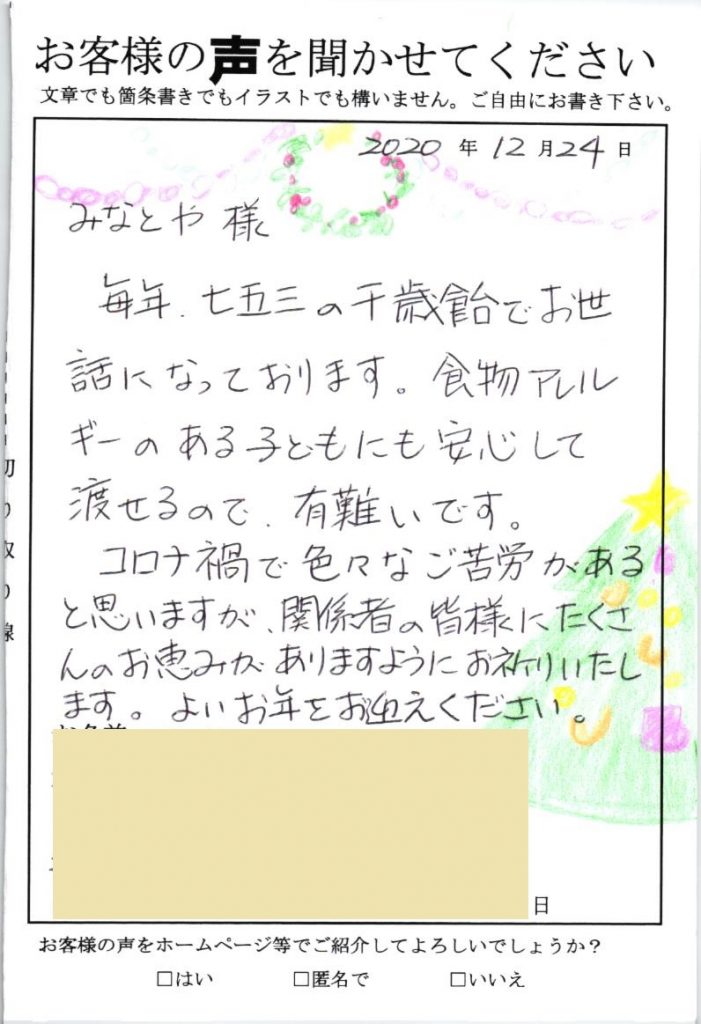 お客様の声を聞かせてください
文章でも箇条書きでもイラストでも構いません。ご自由にお書き下さい。
2020 年 12 月 24 日
みなとや 様
毎年、七五三の千歳飴でお世
話になっております。食物アレル
ギーのある子どもにも安心して
渡せるので、有難いです。
コロナ禍で色々なご苦労がある
と思いますが、関係者の皆様にたくさ
んのお恵みがありますようにお祈りいたし
ます。よいお年をお迎えください。
日
切り取り線
お客様の声をホームページ等でご紹介してよろしいでしょうか？
□はい □匿名で □いいえ